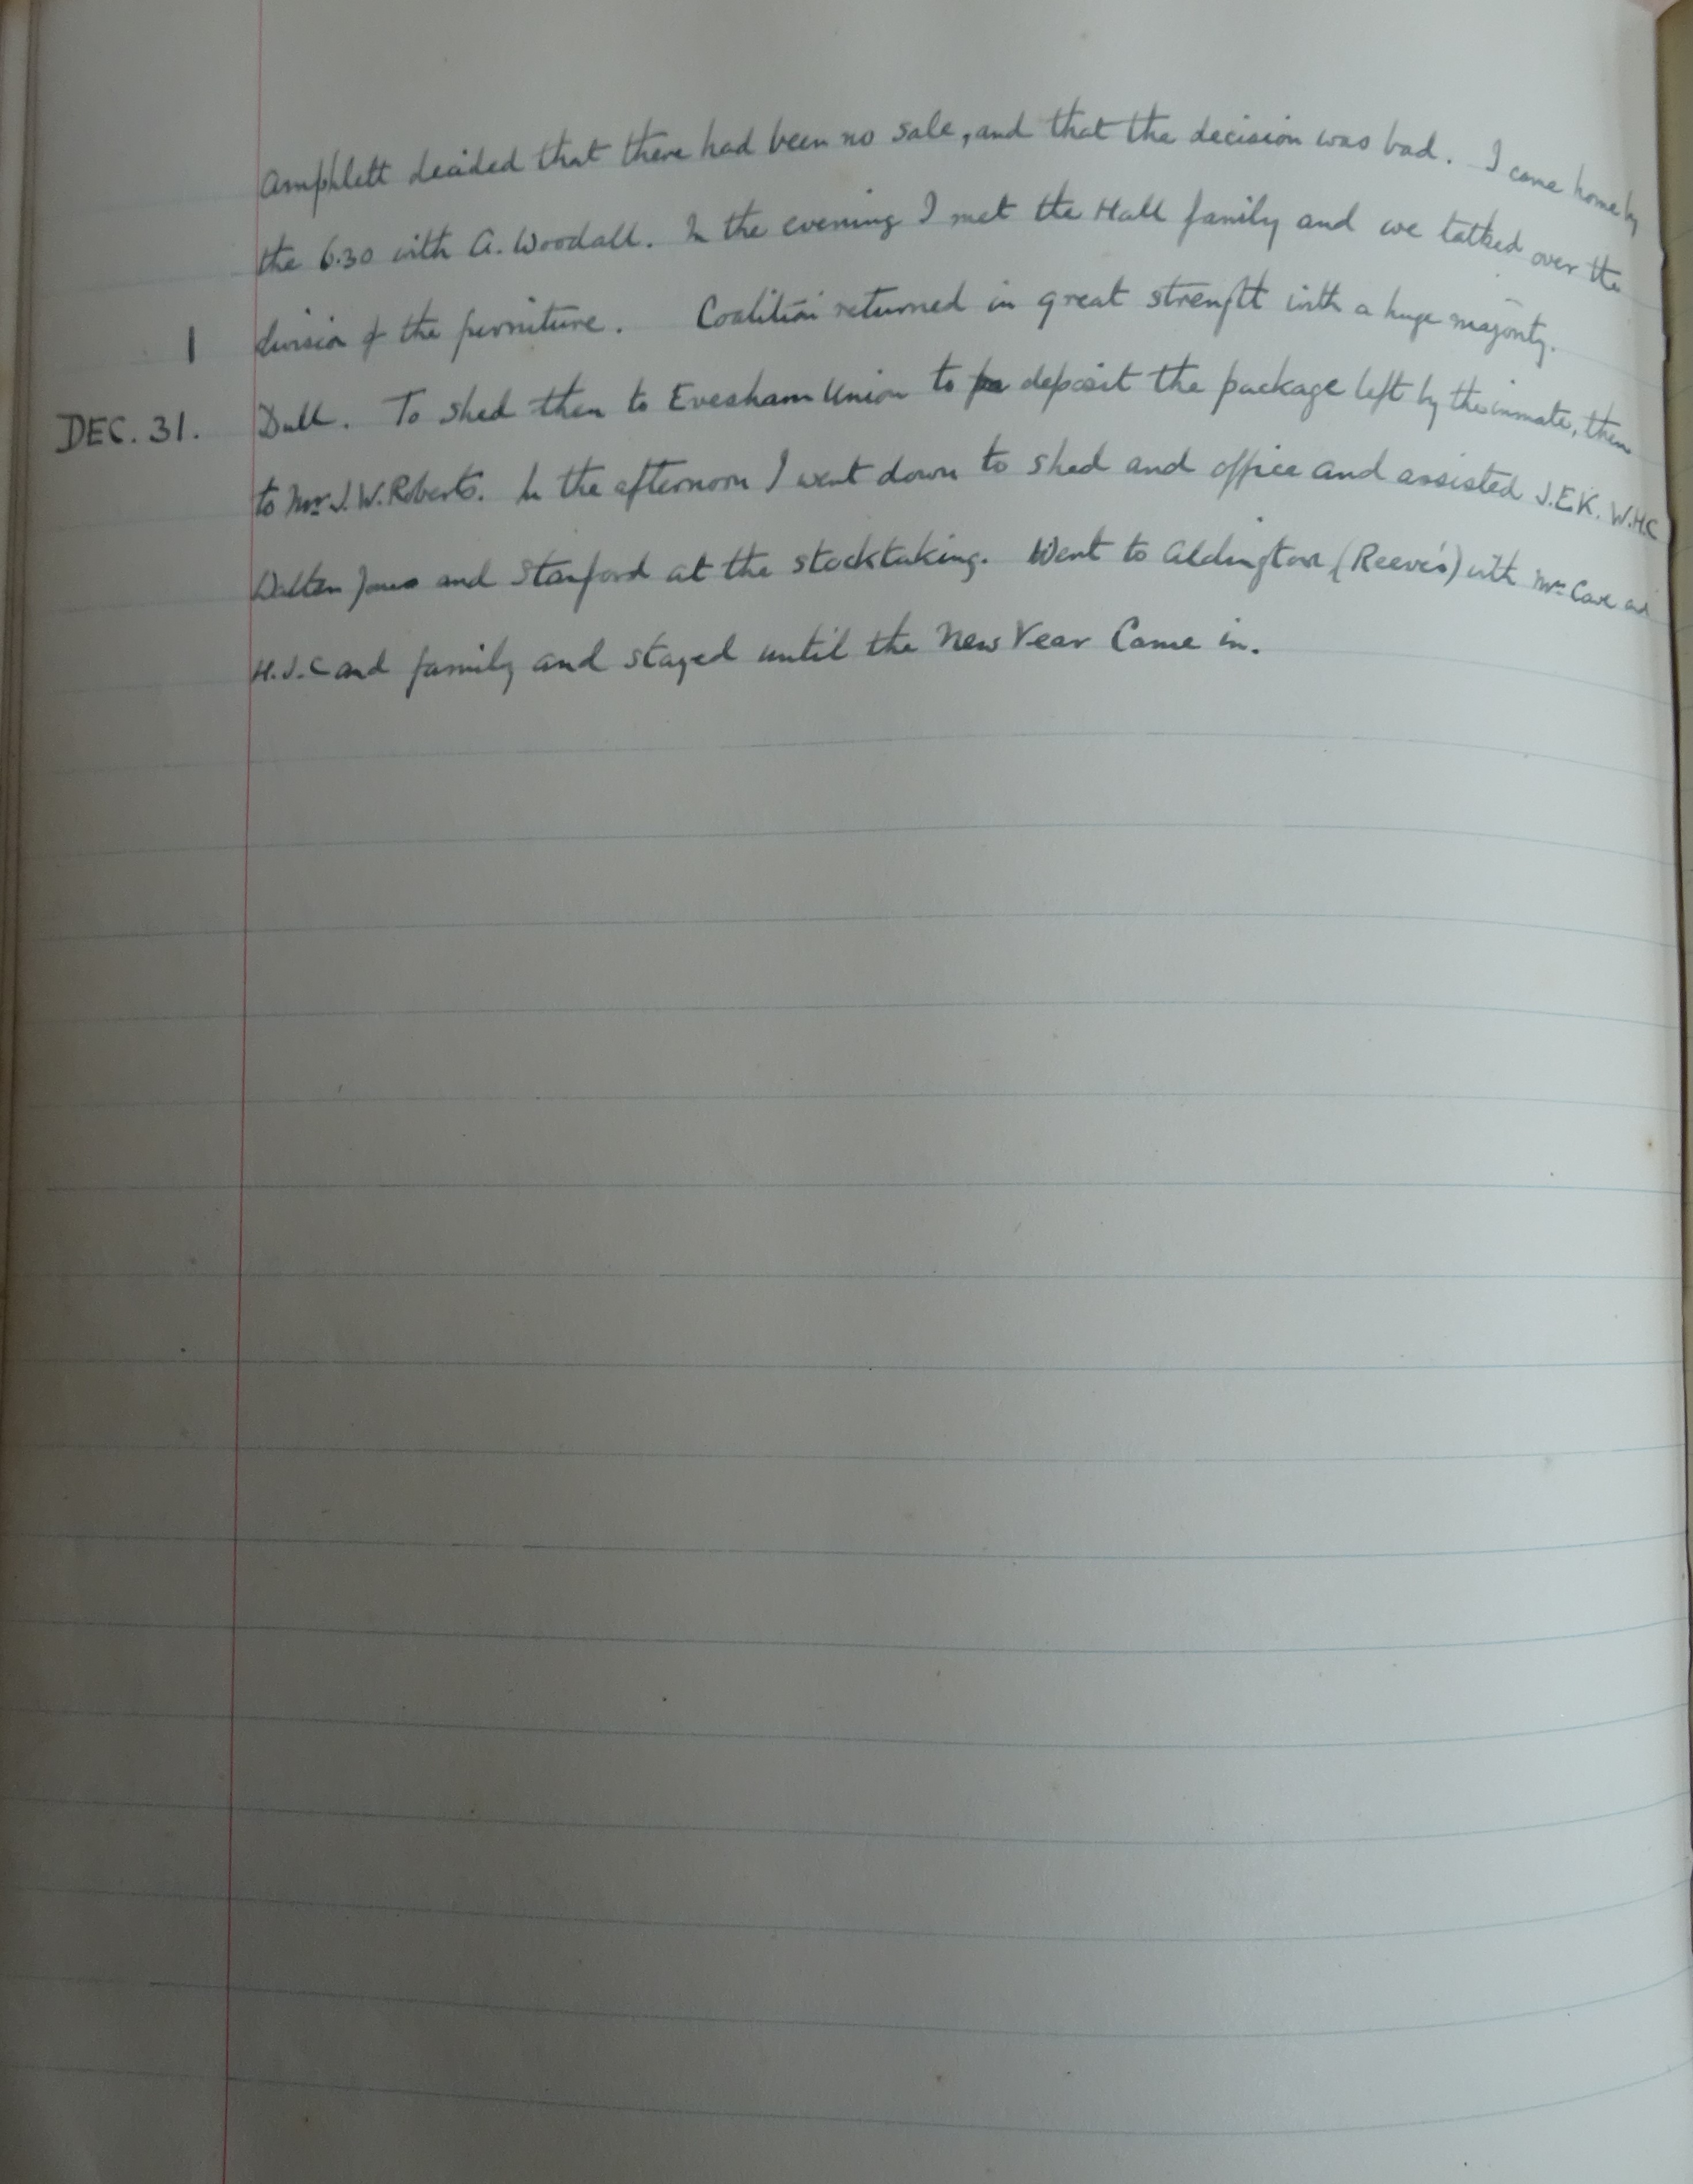 Amphlett decided that there had been no sale, and that the decision was bad. I came home by
the 6.30 with A. Woodall. In the evening I met the Hall family and we talked over the
1 division of the furniture. Coalition returned in great strength with a huge majority.
DEC. 31. Dull. To shed then to Evesham Union to deposit the package left by the inmate, then
to Mr J. W. Roberts. In the afternoon I went down to shed and office and assisted J.E.K. W.H.C
Dalton Jones and Stanford at the stocktaking. Went to Aldington (Reeve's) with Mrs Cave and
H.J.C and family and stayed until the New Year Came in.